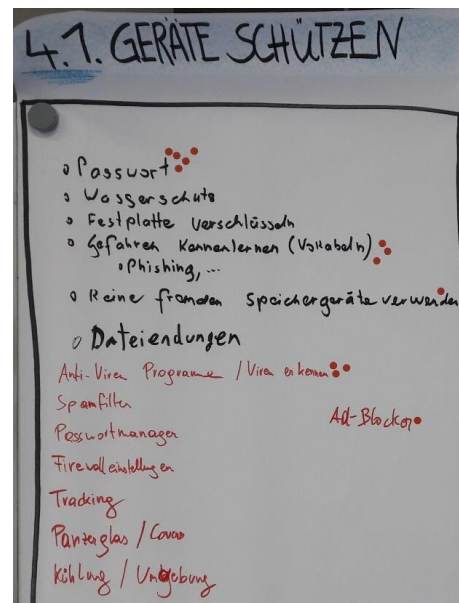 4.1. GERÄTE SCHÜTZEN
Passwort
Wasserschutz
Festplatte verschlüsseln
Gefahren kennenlernen (Vokabeln)
Phishing,...
Keine fremden Speichergeräte verwenden
Dateiendungen
Anti-Viren Programme / Viren erkennen
Spamfilter
Ad-Blocker
Passwortmanager
Firewalleinstellungen
Tracking
Panzerglas / Cover
Kühlung / Umgebung